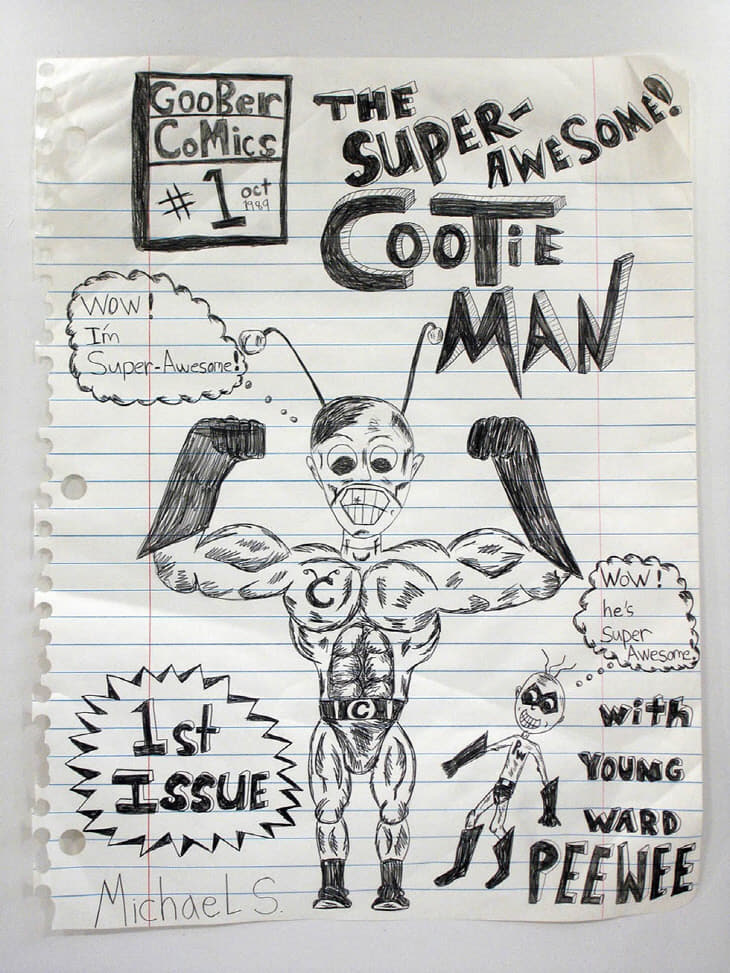 GooBer
CoMics
#1 oct
1989
THE
SUPER-
AWESOME!
CooTiE
MAN
Wow!
I'm
Super-Awesome!
C
C
Wow!
he's
Super
Awesome.
PW
1st
ISSUE
with
YOUNG
WARD
PEEWEE
MichaeL S.